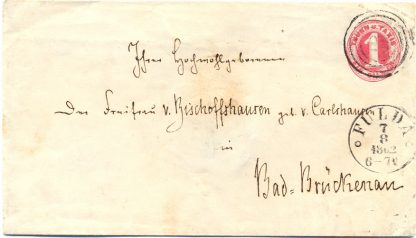 THURN U. TAXIS
1
Ihrer Hochwohlgeboren
Der Freifrau v. Bischoffshausen geb. v. Carlshausen
in
Bad-Brückenau
FULDA
7
8
1862
6-7